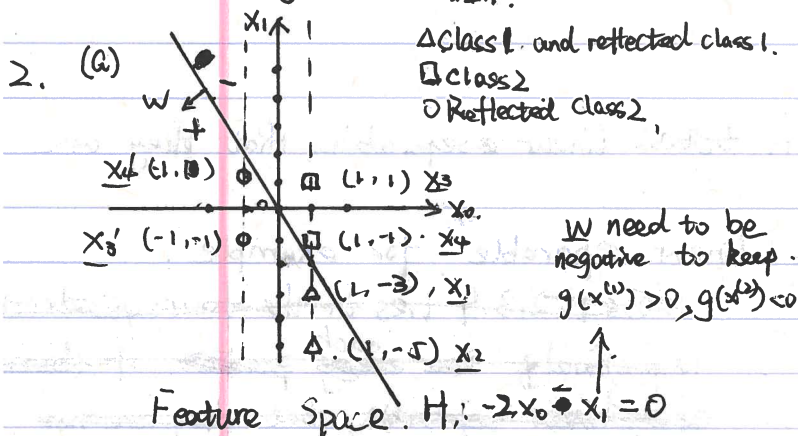 2. (a)
X₁
△ Class 1. and reflected class 1.
□ Class 2
○ Reflected Class 2.
W
-
+
X₄' (-1, 1)
(1, 1) X₃
X₀.
X₃' (-1, -1)
(1, -1) · X₄
(1, -3), X₁
. (1, -5) X₂
W need to be
negative to keep.
g(x⁽¹⁾) >0, g(x⁽²⁾) <0
Feature Space. H₁: -2X₀ - X₁ = 0